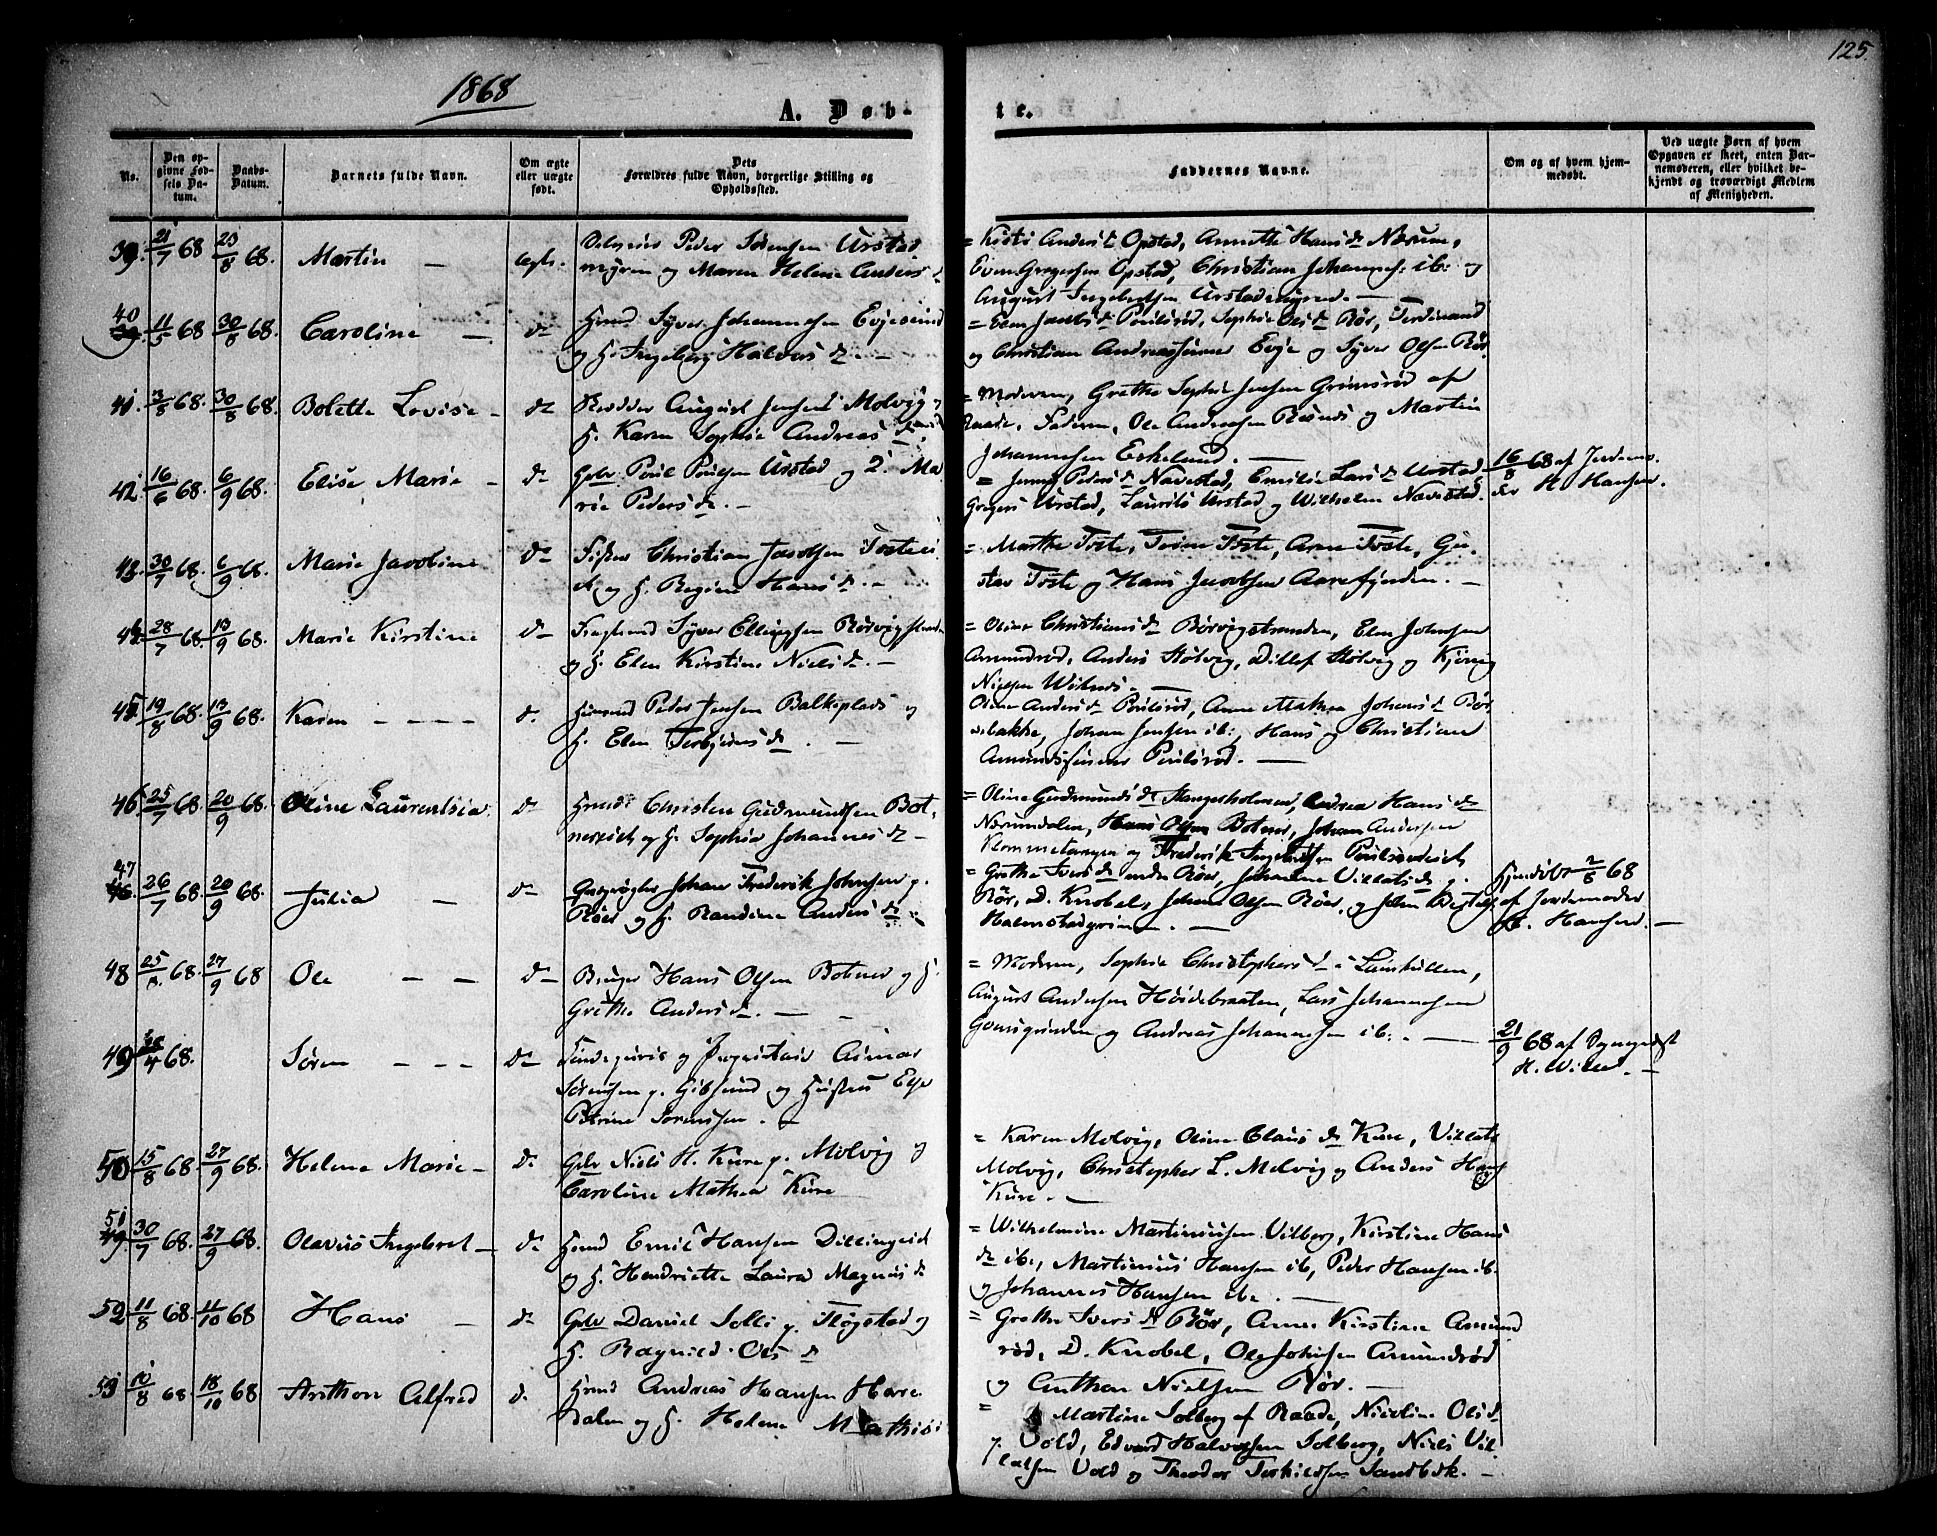 125.
1868
A. Døb-
te.
No.
Den op-
givne Fød-
sels Da-
tum.
Daabs-
Datum.
Barnets fulde Navn.
Om ægte
eller uægte
født.
Dets
Forældres fulde Navn, borgerlige Stilling og
Opholdssted.
Faddernes Navne.
Om og af hvem hjem-
medøbt.
Ved uægte Børn af hvem
Opgaven er skeet, enten Bar-
nemoderen, eller hvilket be-
kjendt og troværdigt Medlem
af Menigheden.
39. 21/7 68 23/8 68. Martin — ægte. Peder Sørensen Urstad
myren og Maren Helene Anders d
= Kisti Anders d Opstad, Annette Hans d Nærum,
Even Gregersen Opstad, Christian Johannes: ib: og
August Ingebretsen Urstadmyren. —
40 11/5 68 30/8 68. Caroline — do Huusmd Syver Johannesen Evjesund
og H. Ingeborg Halvors d. —
= Elen Jacobs d Poulsrød, Sophie Ols d Rør, Ferdinand
og Christian Andreassønner Evje og Syver Olsen Rør
41. 3/8 68. 30/8 68. Bolette Lovise — do August Jensen Molvig og
H. Karen Sophie Andreas d
= Moderen, Grethe Sophie Jensen Grimsrød af
Raade, Faderen, Ole Andreasen Røsnæs og Martin
Johannesen Eskelund. —
42 16/6 68. 6/9 68. Elise Marie — do Gdbr. Poul Poulsen Urstad og H. Ma
rie Peders d. —
= Jenny Peders d Navestad, Emilie Lars d Urstad,
Gregers Urstad, Laurits Urstad og Wilhelm Navestad.
16/8 68 af Jordemo-
der H. Hansen.
43. 30/7 68. 6/9 68. Marie Jacobine do Fisker Christian Jacobsen Toste
og H. Regine Hans d. —
= Marthe Toste, Trine Toste, Arne Toste, Gu-
stav Toste og Hans Jacobsen Aarefjorden. —
44. 28/7 68. 13/9 68. Marie Kirstine do Syver Ellingsen Rørvigstranden
og H. Elen Kirstine Niels d. —
= Oline Christians d Rørvigstranden, Elen Johnsen
Amundrød, Anders Støtvig, Ditlef Støtvig og
Nielsen —
45 19/8 68. 13/9 68. Karen — — — do. Huusmd Peder Jensen Balkeplads og
H. Elen Torbjørns d. —
Oline Anders d Poulsrød, Anne Mathea Johans d Rør
bakke, Johan Jensen ib:, Hans og Christian
Amundssønner Poulsrød. —
46 25/7 68. 20/9 68. Oline Laurentsia do Huusmd Christen Gudmundsen Bot-
nereiet og H. Sophie Johannes d —
= Oline Gudmunds d Kongesholmen, Andrea Hans d
Nærumdalen, Hans Olsen Botner, Johan Andersen
og Frederik Ingebretsen Poulsrødeiet
47 26/7 68 20/9 68 Julia — do Johan Frederik Johnsen p.
Røer og H. Randine Anders d
= Grethe Ivers d Røer, Johanne Villats d p.
Rør, D. Knobel, Johan Olsen Røer, og
Halmstadgrinden. —
Hjemdøbt 2/8 68
af Jordemoder
H. Hansen. —
48 25/8. 68. 27/9 68 Ole — — do Bruger Hans Olsen Botner og H.
Grethe Anders d. — —
= Moderen, Sophie Christophers d
August Andersen Høidebraaten, Lars Johannesen
og Andreas Johannesen ib: . —
49 /4 68. Søren — — — do og Aimar
Sørensen p. Gibsund og Hustru Else
Petrine Sørensen. —
21/9 68 af Sognepræst
H. Wille. —
50 15/8 68 27/9 68. Helene Marie — do. Gdbr Niels H. Kure p. Molvig og
Caroline Mathea Kure
= Karen Molvig, Oline Claus d Kure, Villats
Molvig, Christopher L. Molvig og Anders Hans
Kure. —
51 30/7 68. 27/9 68. Olavus Ingebret — do Huusmd Emil Hansen Dillingeiet
og H. Hendriette Laura Magnus d
= Wilhelmine Martinussen Vilberg, Kirstine Hans
d ib:, Martinus Hansen ib, Peder Hansen ib.
og Johannes Hansen ib. —
52 11/8 68 11/10 68 Hans — do Gdbr Daniel Solli p. Fløgstad og
H. Ragnild Ols d
= Grethe Ivers d Rør, Anne Kirstine Amund
rød, D. Knobel, Ole Johnsen Amundrød
og Anthon Nielsen Rør. —
53 10/8 68 18/10 68 Anthon Alfred do. Huusmd Andreas Hansen Hare
dalen og H. Helene Mathis
= Martine Solberg af Raade, Nicoline Ols d
p. Vold, Edvard Halvorsen Solberg, Niels Vil-
latsen Vold og Theodor Torkildsen Sandbæk. —